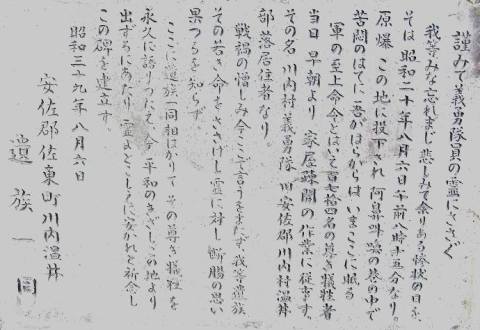 謹みて義勇隊員の霊にささぐ
我等みな忘れまじ悲しみて余りある惨状の日を、
そは 昭和二十年八月六日午前八時十五分なり。
原爆 この地に投下され 阿鼻叫喚の巷の中で
苦悶のはてに 吾がはらからは いまここに眠る
軍の至上命令とはいえ百七拾四名の尊き犠牲者
当日 早朝より 家屋疎開の作業に従事す。
その名 川内村義勇隊 旧安佐郡川内村温井
部落居住者なり。
戦禍の憎しみ今ここで言うをまたず 我等遺族
その若き命をささげし霊に対し 断腸の思い
果つるを知らず。
ここに遺族一同相はかりて その尊き犠牲を
永久に語りつたえ 今 平和のきざし、この地より
出ずるにあたり 霊よとこしえに安かれと祈念し
この碑を建立す。
昭和三十九年八月六日
安佐郡佐東町川内温井
遺族一同